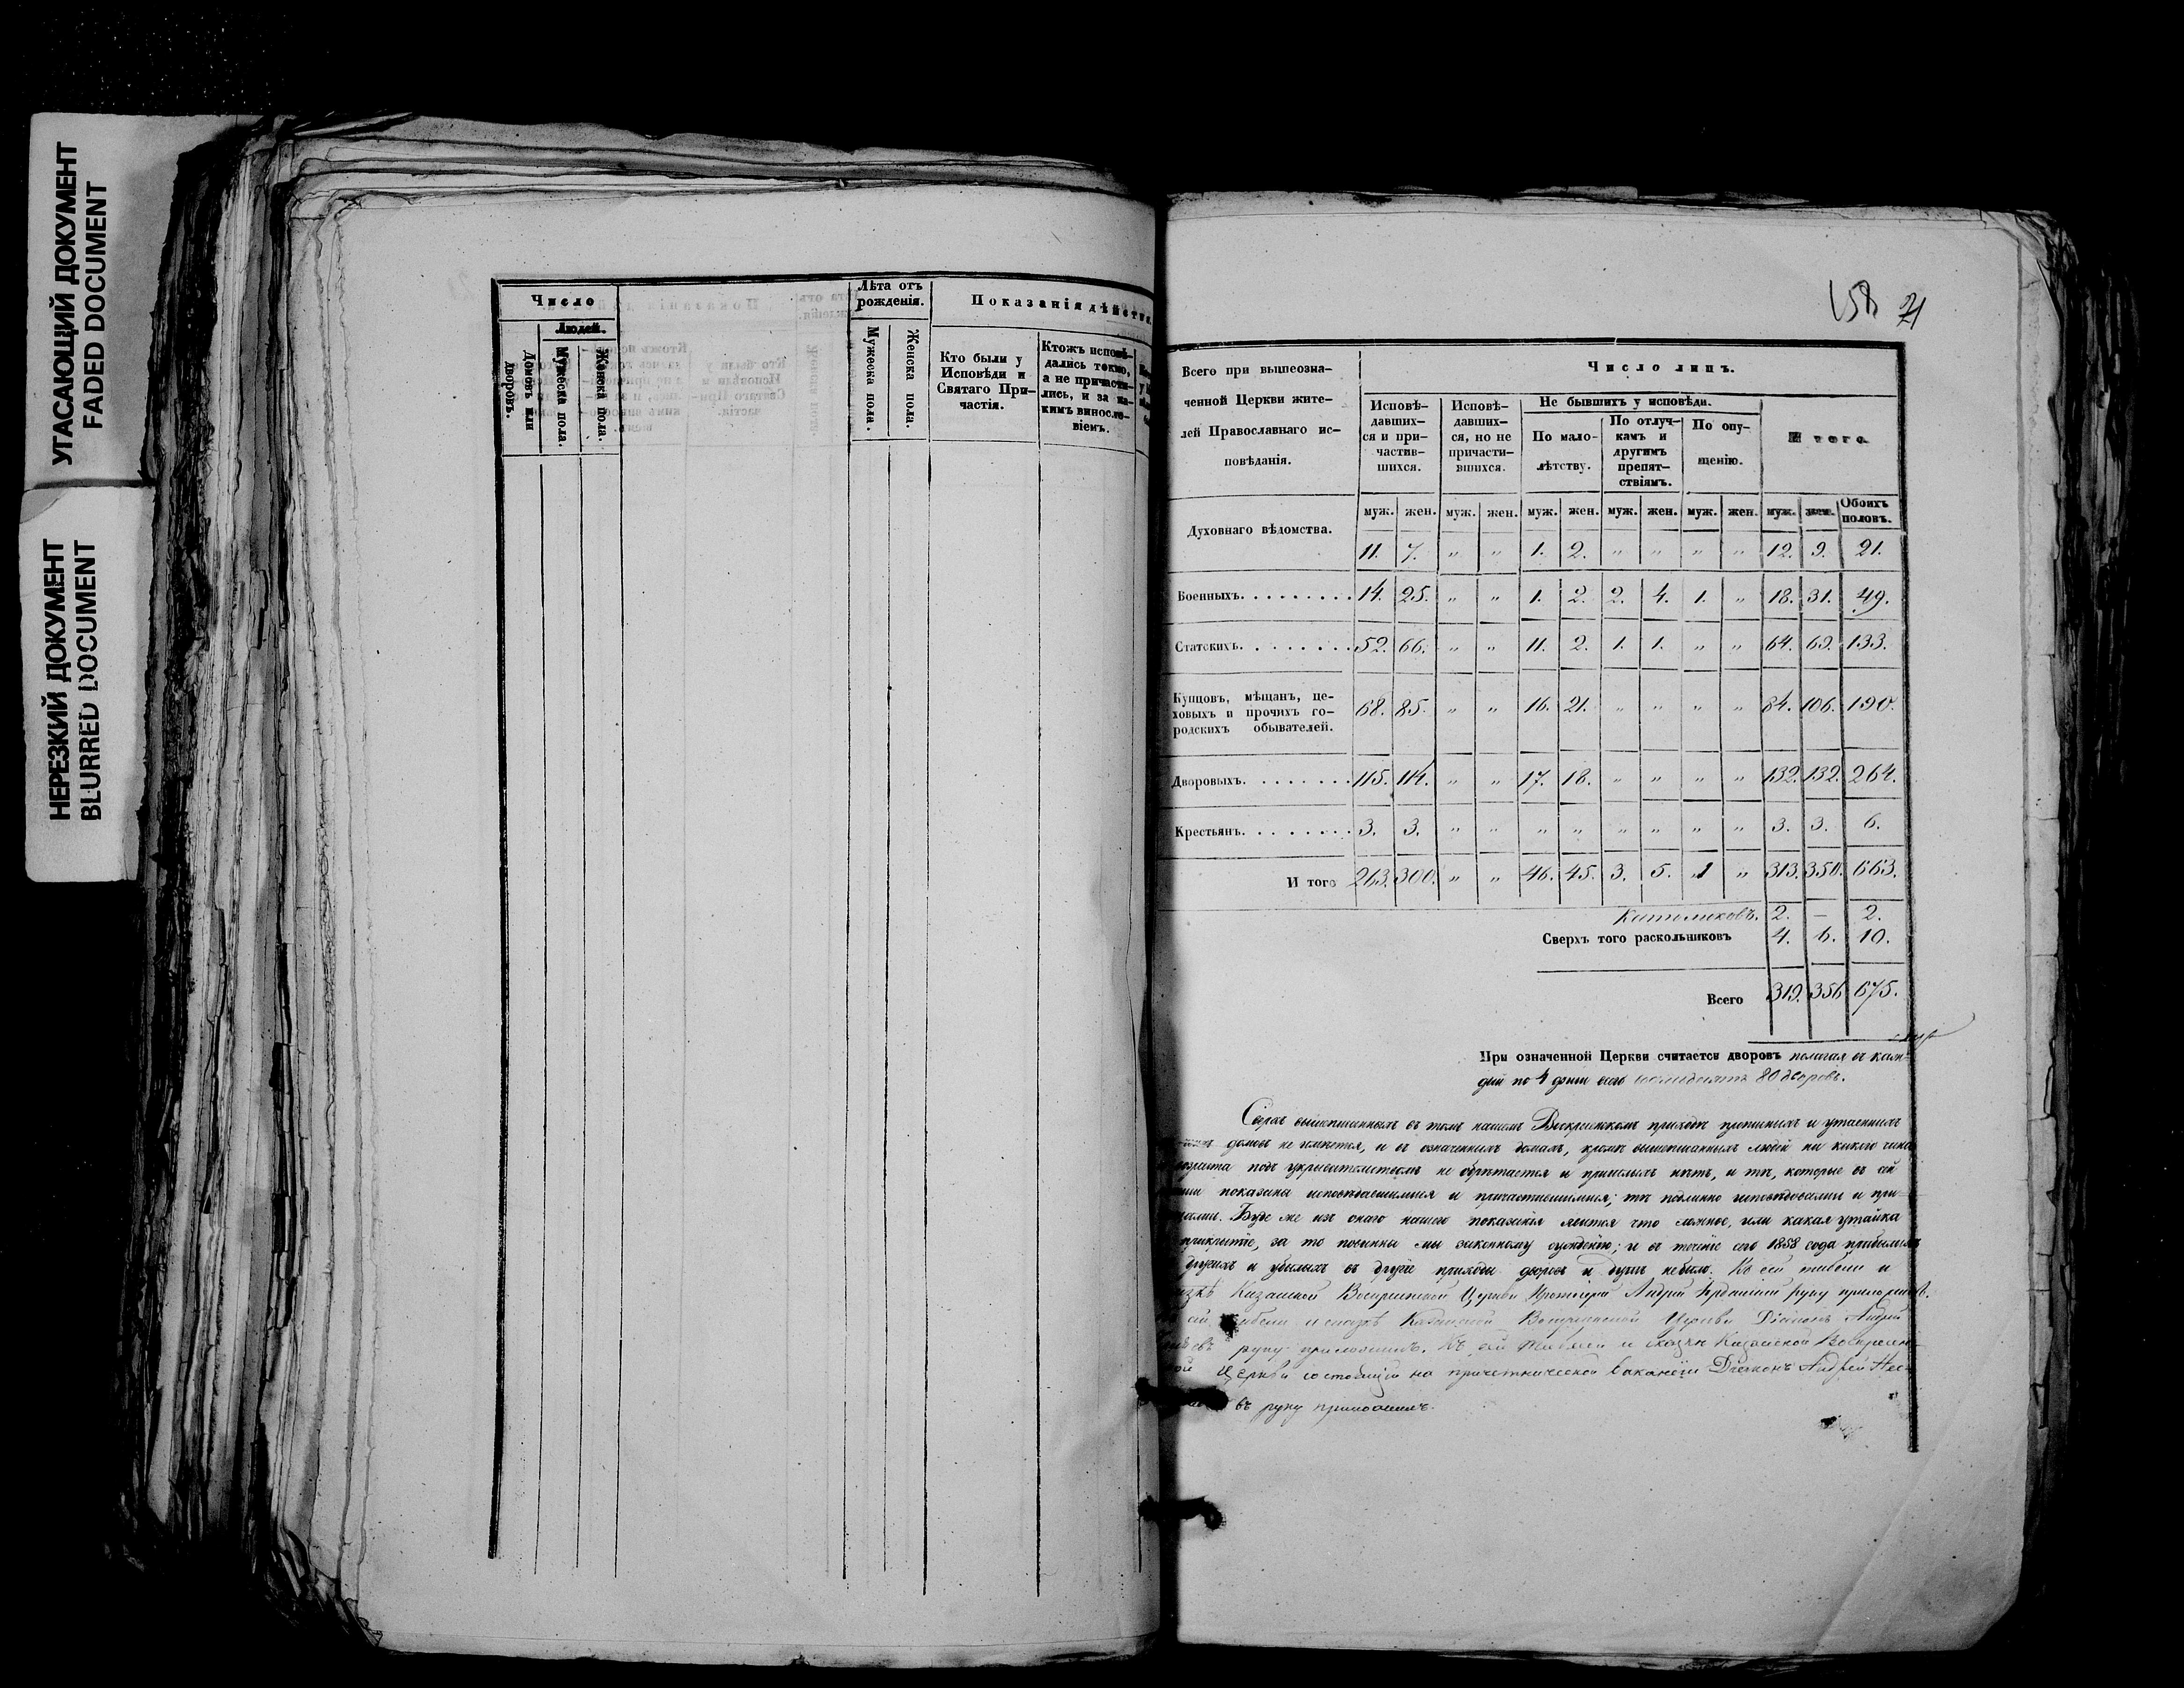 УГАСАЮЩИЙ ДОКУМЕНТ
FADED DOCUMENT
НЕРЕЗКИЙ ДОКУМЕНТ
BLURRED DOCUMENT
Число
Людей.
Домовъ или дворовъ.
Мужеска пола.
Женска пола.
Лѣта отъ рожденія.
Мужеска пола.
Женска пола.
Показанія дѣйства
Кто были у
Исповѣди и
Святаго При-
частія.
Ктожъ исповѣ-
дались токмо,
а не причасти-
лись, и за ка-
кимъ винослo-
віемъ.
158 21
Всего при вышеозна-
ченной Церкви жите-
лей Православнаго ис-
повѣданія.
Число лицъ.
Исповѣ-
давших-
ся и при-
частив-
шихся.
Исповѣ-
давших-
ся, но не
причасти-
вшихся.
Не бывшихъ у исповѣди.
По мало-
лѣтству.
По отлуч-
камъ и
другимъ
препят-
ствіямъ.
По опу-
щенію.
Итого
муж. жен. муж. жен. муж. жен. муж. жен. муж. жен. муж. жен. Обоихъ половъ.
Духовнаго вѣдомства.
11. 7. " " 1. 2. " " " " 12. 9. 21.
Военныхъ. 14. 25. " " 1. 2. 2. 4. 1. " 18. 31. 49.
Статскихъ. 52. 66. " " 11. 2. 1. 1. " " 64. 69. 133.
Купцовъ, мѣщанъ, це-
ховыхъ и прочихъ го-
родскихъ обывателей.
68. 85. " " 16. 21. " " " " 84. 106. 190.
Дворовыхъ. 115. 114. " " 17. 18. " " " " 132. 132. 264.
Крестьянъ. 3. 3. " " " " " " " " 3. 3. 6.
И того 263. 300. " " 46. 45. 3. 5. 1 " 313. 350. 663.
Католиковъ. 2. — 2.
Сверхъ того раскольниковъ 4. 6. 10.
Всего 319. 356 675.
При означенной Церкви считается дворовъ полагая въ каж-
дый по 4 души всего восемьдесятъ 80 дворовъ.
Сверхъ вышеписанныхъ въ томъ нашемъ Воскресенскомъ приходѣ и утаенныхъ
домовъ не имѣется, и въ означенныхъ домахъ, кромѣ вышеписанныхъ людей ни какого чина
подъ укрывательствомъ не обрѣтается и пришлыхъ нѣтъ, и тѣ, которые въ сей
показаны исповѣдавшимися и причастившимися; тѣ подлинно исповѣдовались и при-
Буде же изъ онаго нашего показанія явится что ложное, или какая утайка
прикрытіе, за то повинны мы законному сужденію; и въ теченіе сего 1858 года прибылыхъ
другихъ и убылыхъ въ другіе приходы дворовъ и душъ небыло. Къ сей табели и
Казанской Воскресенской Церкви Протоіерей Андрей руку приложилъ.
сей табели и сказкѣ Казанской Воскресенской Церкви Діаконъ Андрей
руку приложилъ. Къ сей табели и сказкѣ Казанской Воскресен-
ской Церкви состоящій на причетнической вакансіи Діаконъ Андрей
въ руку приложилъ.